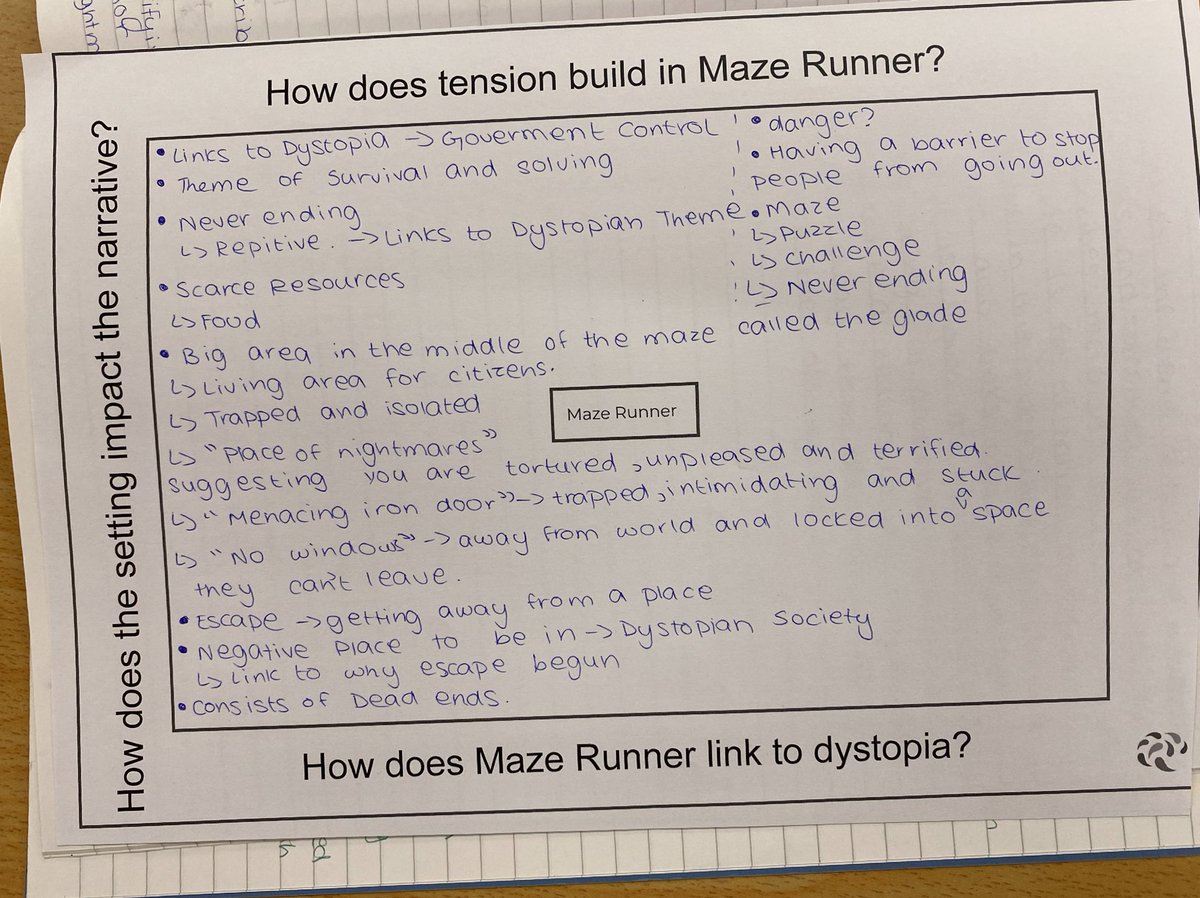 How does tension build in Maze Runner?
How does the setting impact the narrative?
• Links to Dystopia → Goverment control
• Theme of survival and solving
• Never ending
↳ Repitive. → Links to Dystopian Theme
• Scarce Resources
↳ Food
• danger?
• Having a barrier to stop
people from going out.
• Maze
↳ Puzzle
↳ challenge
↳ Never ending
• Big area in the middle of the maze called the glade
↳ Living area for citizens.
↳ Trapped and isolated
Maze Runner
↳ "Place of nightmares"
suggesting you are tortured, unpleased and terrified.
↳ "Menacing iron door" → trapped, intimidating and stuck.
↳ "No windows" → away from world and locked into a space
they can't leave.
• Escape → getting away from a place
• Negative place to be in → Dystopian society
↳ Link to why escape begun
• consists of Dead ends.
How does Maze Runner link to dystopia?